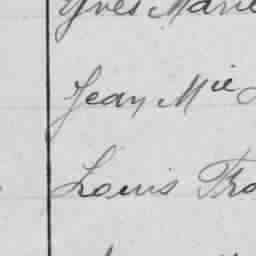 Yves Marie
Jean Mie
Louis